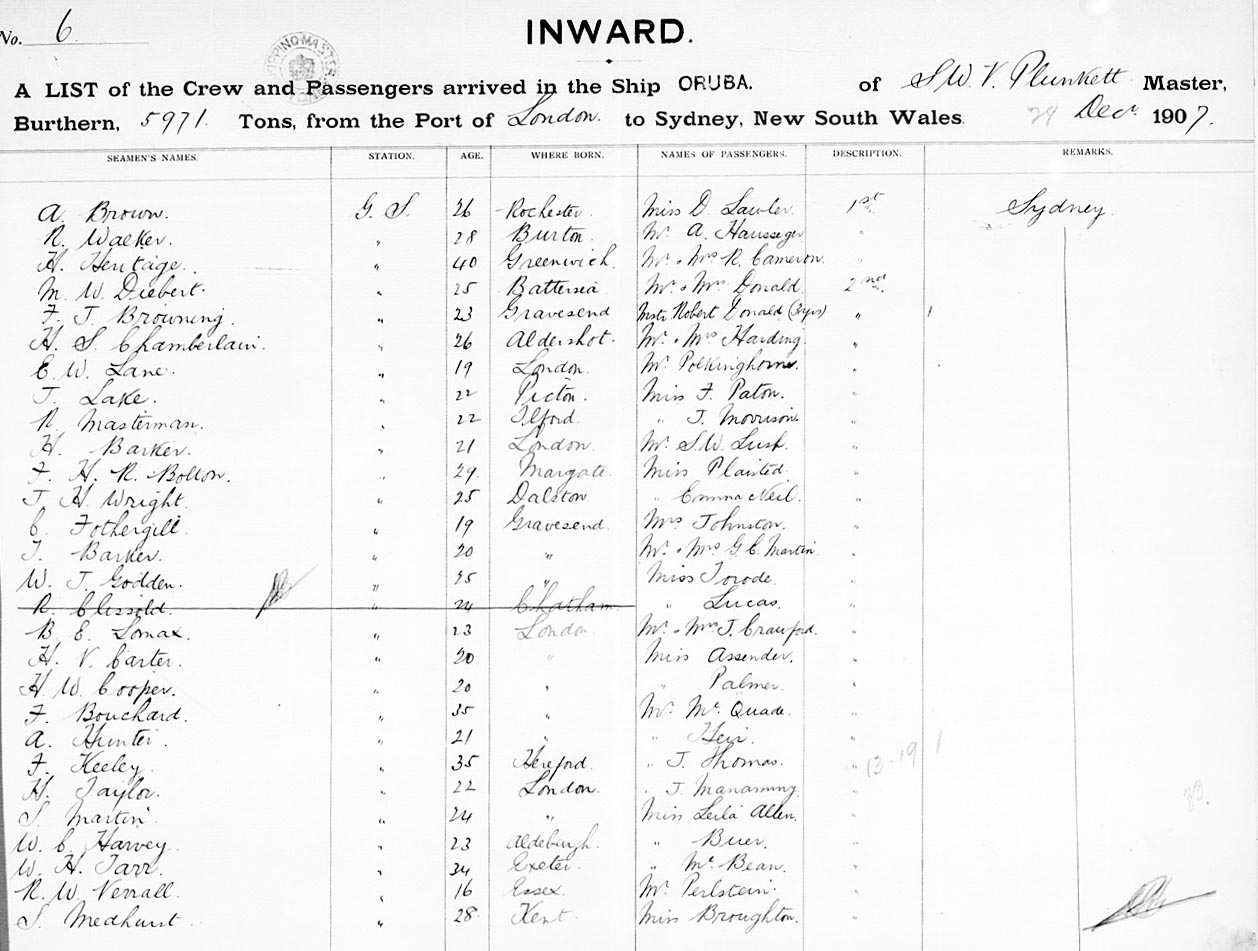 No. 6
INWARD.
A LIST of the Crew and Passengers arrived in the Ship ORUBA. of S W. V. Plunkett Master,
Burthern, 5971. Tons, from the Port of London. to Sydney, New South Wales. 29 Decr 1907.
SEAMEN'S NAMES. STATION. AGE. WHERE BORN. NAMES OF PASSENGERS. DESCRIPTION. REMARKS.
A. Brown. G. S. 26 Rochester. Miss D. Lawler. 1st Sydney.
R. Walker. " 28 Burton. Mr. A. Hausseger "
H. Heritage. " 40 Greenwich. Mr. & Mrs R. Cameron. "
M. W. Diebert. " 25 Battersea Mr. & Mrs Donald. 2nd
F. J. Browning. " 23 Gravesend Mstr Robert Donald "
H. S. Chamberlain. " 26 Aldershot. Mr. & Mrs Harding. "
E. W. Lane. " 19 London. Mr. Polkinghorne. "
J. Lake. " 22 Picton. Miss F. Paton. "
R. Masterman. " 22 Ilford. " J. Morrison. "
H. Barker. " 21 London. Mr. S. W. Lush. "
F. H. R. Bolton. " 29. Margate. Miss Plaisted. "
J. H. Wright. " 25 Dalston " Emma Neil. "
C. Fothergill. " 19 Gravesend. Mrs Johnston. "
T. Barker. " 20 " Mr. & Mrs G. C. Martin. "
W. J. Godden. " 25 " Miss Torode. "
R. Clissold. " 24 Chatham. " Lucas. "
B. E. Lomax. " 23 London. Mr. & Mrs J. Crawford. "
H. V. Carter. " 20 " Miss Assender. "
H. W. Cooper. " 20 " " Palmer. "
F. Bouchard. " 35 " Mr. Mc. Quade. "
A. Hunter. " 21 " " "
F. Keeley. " 35 Hereford. " J. Thomas. " 13-19 1
H. Taylor. " 22 London. " J. "
S. Martin. " 24 " Miss Leila Allen. "
W. C. Harvey. " 23 Aldeburgh. " "
W. H. Tarr. " 34 Exeter. " Mc. Bean. "
R. W. Verrall. " 16 Essex. Mr. Perlstein. "
S. Medhurst. " 28 Kent. Miss Broughton. "